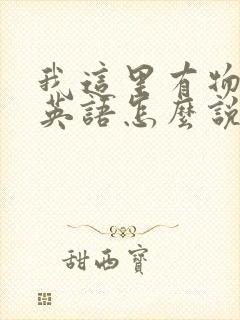 我這里有物
英語怎麽說
甜西寶